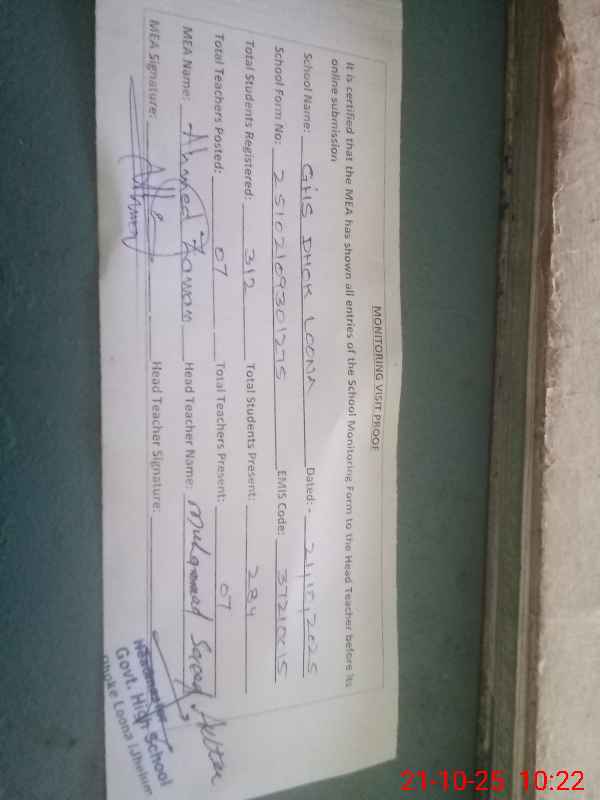 MONITORING VISIT PROOF
It is certified that the MEA has shown all entries of the School Monitoring Form to the Head Teacher before its
online submission
School Name: GHS DHOK LOONA Dated:- 21,10,2025
School Form No: 25102109301275 EMIS Code: 37210015
Total Students Registered: 312 Total Students Present: 284
Total Teachers Posted: 07 Total Teachers Present: 07
MEA Name: Ahmed Head Teacher Name: Muhammad Saeed
MEA Signature: Head Teacher Signature:
Headmaster
Govt. High School
Dhoke Loona
21-10-25 10:22